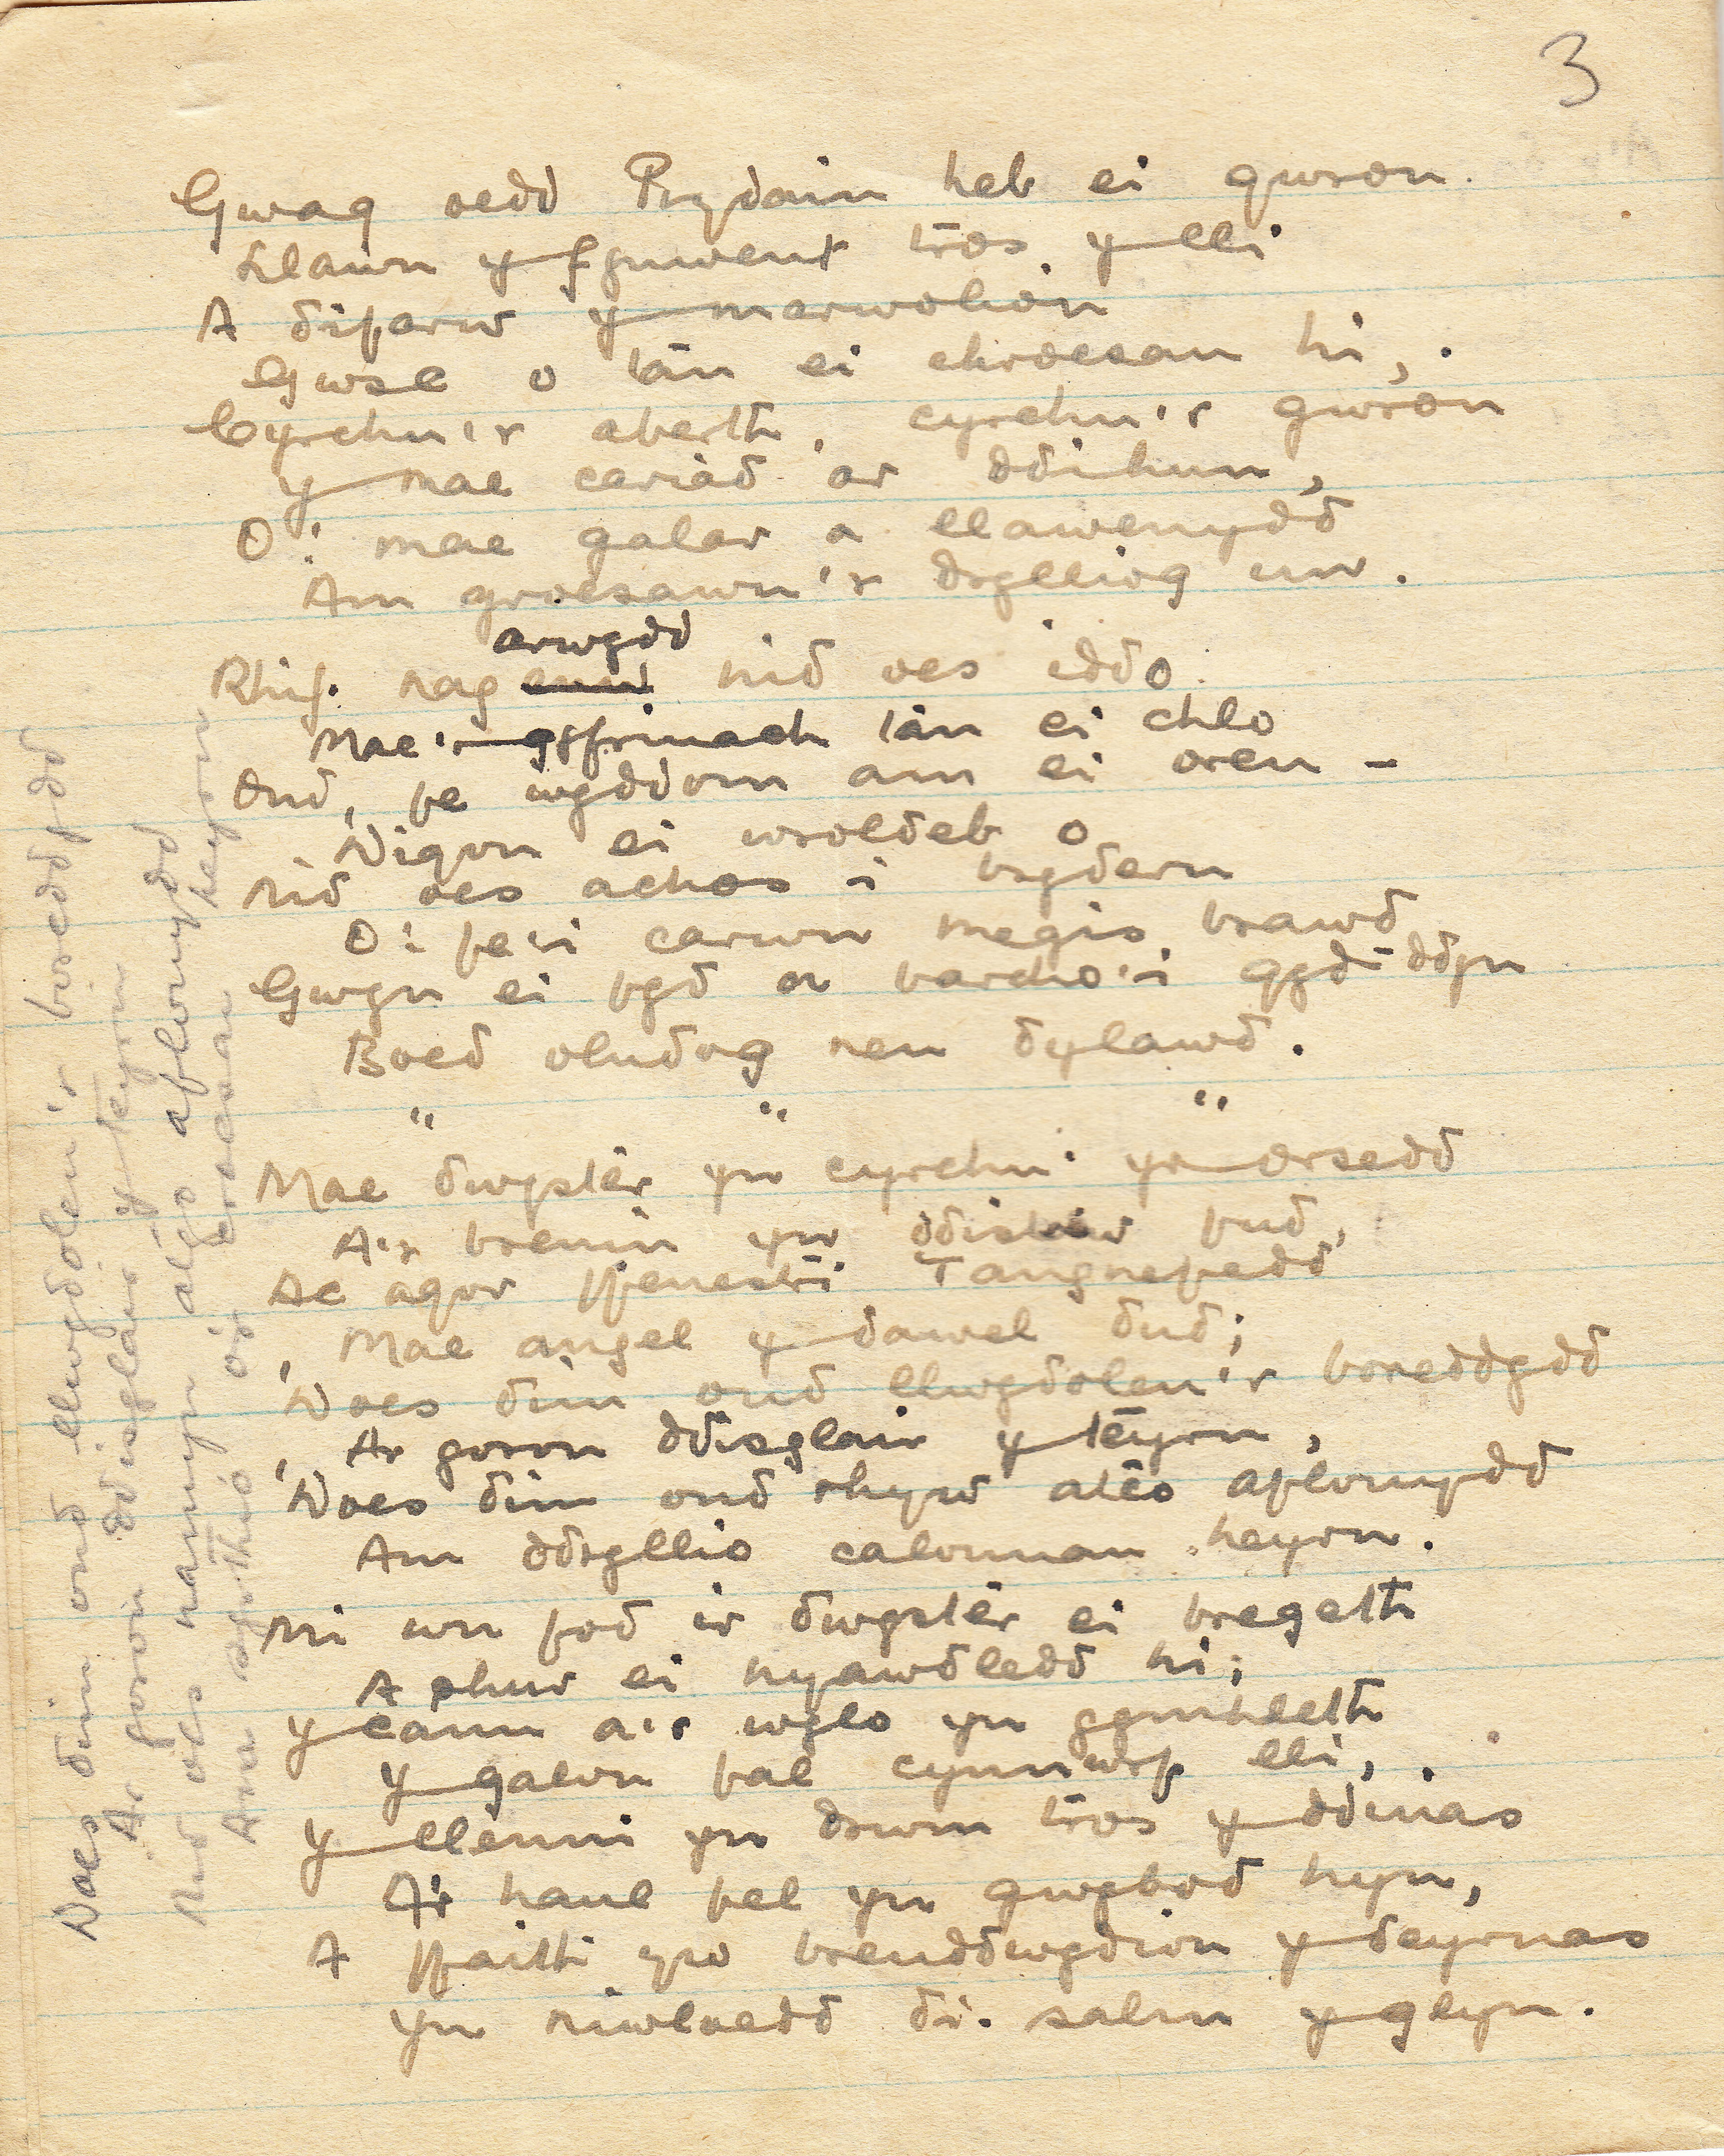 3
Gwag oedd Prydain heb ei gwron.
Llawn y fynwent tros y lli
A difarw y marwolion
Gwsc o tàn ei chroesan hi,
Cyrchu'r aberth, cyrchu'r gwron
Y mae cariad ar ddihun,
O! mae galar a llawenydd
Am groesawu'r drylliog un.
arwydd
Rhif. nag enw nid oes iddo
Mae'r gyfrinach tàn ei chlo
Ond, pe wyddom am ei oren –
'Digon ei wroldeb o
Nid oes achos i bryderu
O! fe'i carwn megis brawd
Gwyn ei fyd a barcho'i gyd-ddyn
Boed oludog neu dylawd.
" " "
Mae dwyster yn cyrchu yr orsedd
A'r brenin yn ddistaw fud,
Ac agor ffenestri Tangnefedd
Mae angel y dawel dud;
'Does dim ond llwydolen'r boneddydd
Ar goron ddisglair y tëyrn,
'Does dim ond rhyw atĉo aflonydd
Am ddryllio calonnau heyrn.
Mi wn fod ir dwyster ei bregeth
A phur ei hyawdledd hi;
Y cànn a'r wylo yn gymhleth
Y galon fal cynnwrf lli,
Y llenni yn drwm tros y ddinas
A'r haul fel yn gwybod hyn,
A ffaith yw breuddwydion y deyrnas
Yn niwloedd di. salm y glyn.
'Does dim ond llwydolen'r boneddydd
Ar goron ddisglair y tëyrn
Nid oes namyn atgo aflonydd
heyrn
Am